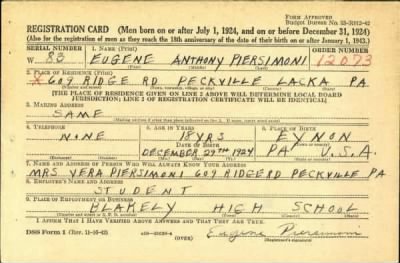 Form Approved
Budget Bureau No. 33-R012-42
REGISTRATION CARD—(Men born on or after July 1, 1924, and on or before December 31, 1924)
(Also for the registration of men as they reach the 18th anniversary of the date of their birth on or after January 1, 1943.)
SERIAL NUMBER 1. NAME (Print) ORDER NUMBER
W 83 EUGENE ANTHONY PIERSIMONI 12073
(First) (Middle) (Last)
2. PLACE OF RESIDENCE (Print)
609 RIDGE RD PECKVILLE LACKA PA
[THE PLACE OF RESIDENCE GIVEN ON LINE 2 ABOVE WILL DETERMINE LOCAL BOARD
JURISDICTION; LINE 2 OF REGISTRATION CERTIFICATE WILL BE IDENTICAL]
3. MAILING ADDRESS
SAME
4. TELEPHONE 5. AGE IN YEARS 6. PLACE OF BIRTH
NONE 18 YRS EYNON
DATE OF BIRTH
DECEMBER 29TH 1924 PA U.S.A.
7. NAME AND ADDRESS OF PERSON WHO WILL ALWAYS KNOW YOUR ADDRESS
MRS VERA PIERSIMONI 609 RIDGE RD PECKVILLE PA
8. EMPLOYER'S NAME AND ADDRESS
STUDENT
9. PLACE OF EMPLOYMENT OR BUSINESS
BLAKELY HIGH SCHOOL
I AFFIRM THAT I HAVE VERIFIED ABOVE ANSWERS AND THAT THEY ARE TRUE.
DSS Form 1 (Rev. 11-16-42) (OVER) Eugene Piersimoni